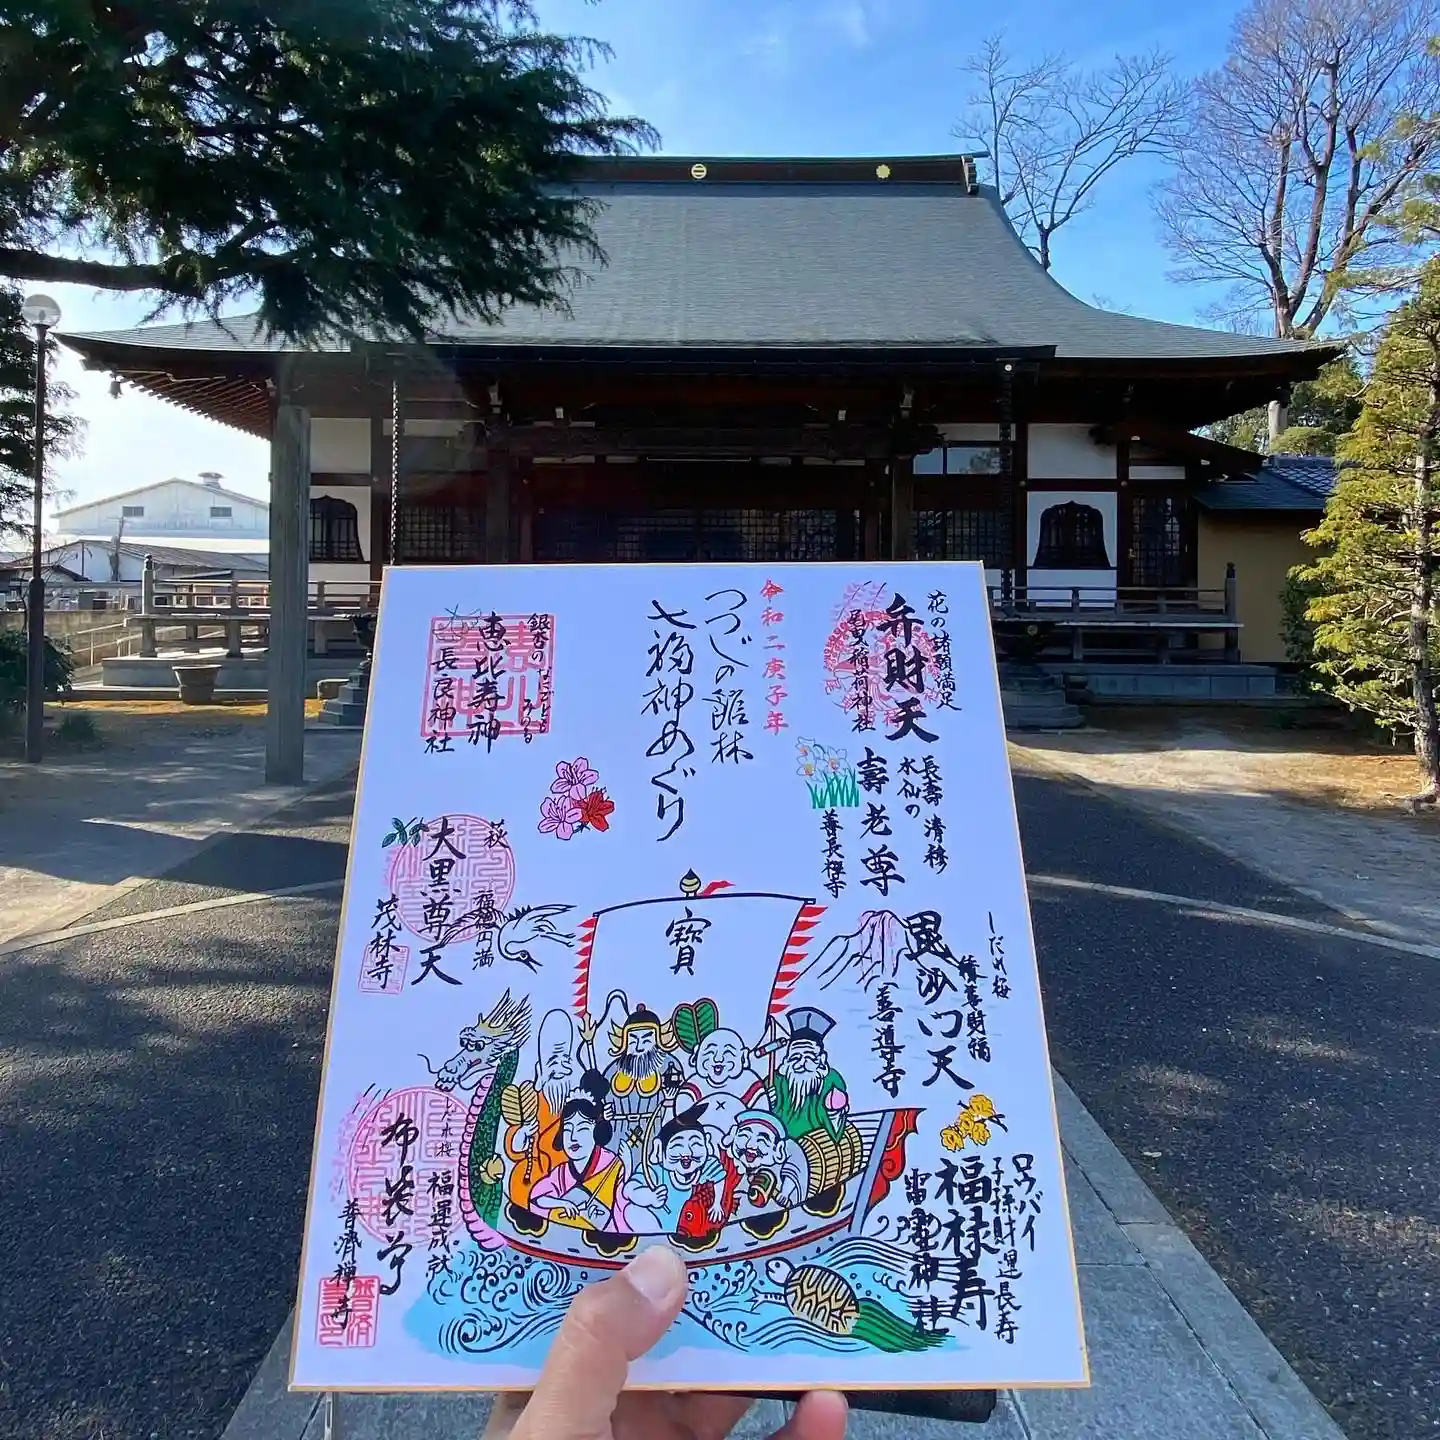 令和二庚子年
つつじの館林
七福神めぐり
花の諸願満足
弁財天
尾曳稲荷神社
長壽 清穆
水仙の
壽老尊
善長寺
しだれ梅
毘沙门天
善導寺
ロウバイ
子孫財運長寿
福禄寿
雷電神社
銀杏の
恵比寿神
長良神社
萩
福徳円満
大黒尊天
茂林寺
福運成就
布袋尊
普濟禅寺
寶